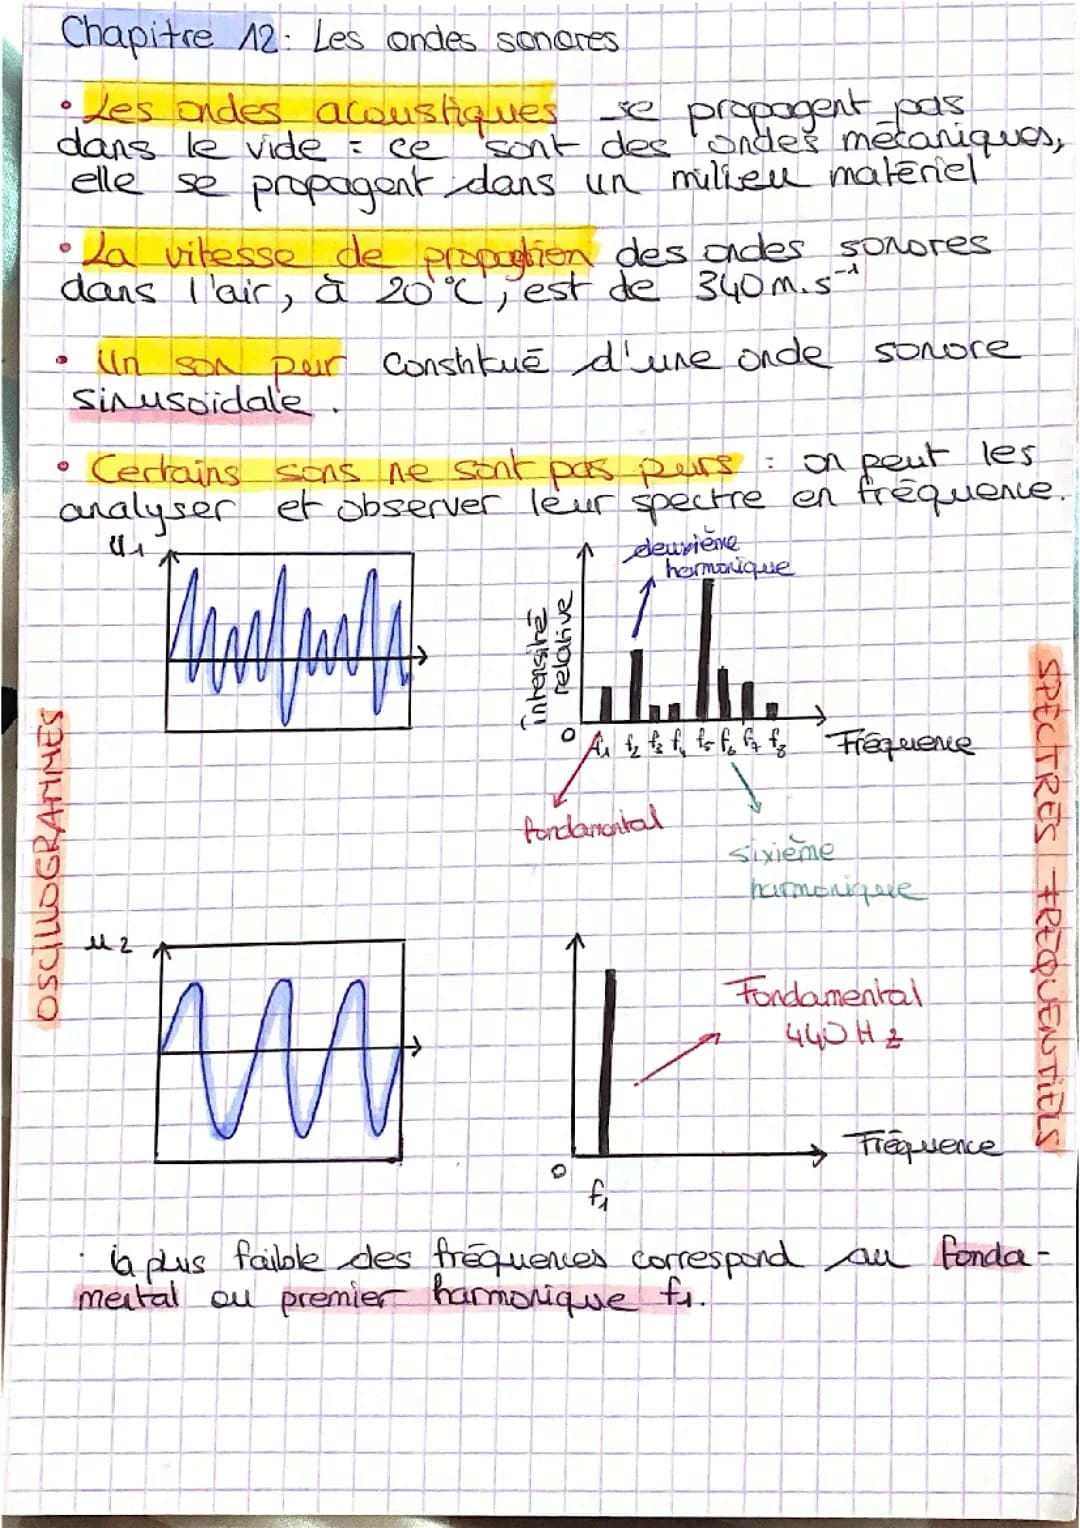 Chapitre 12: Les ondes sonores
• Les ondes acoustiques se propagent pas
dans le vide : ce sont des ondes mécaniques,
elle se propagent dans un milieu matériel
• La vitesse de propagtion des ondes sonores
dans l'air, à 20°C, est de 340 m.s⁻¹
• Un son pur constitué d'une onde sonore
sinusoïdale.
• Certains sons ne sont pas purs : on peut les
analyser et observer leur spectre en fréquence.
U1
deuxième
harmonique
intensité
relative
0 f1 f2 f3 f4 f5 f6 f7 f8 Fréquence
fondamental
sixième
harmonique
OSCILLOGRAMMES
SPECTRES FREQUENTIELS
u2
Fondamental
440Hz
Fréquence
0
f1
· la plus faible des fréquences correspond au fonda-
mental ou premier harmonique f1.